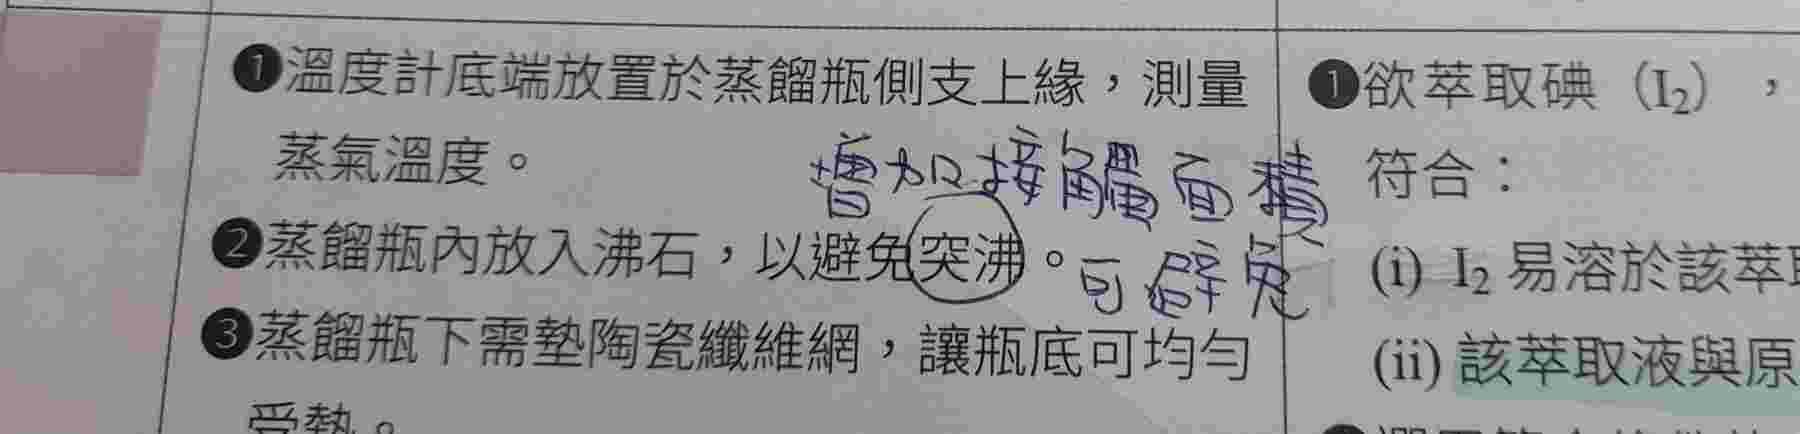 ❶溫度計底端放置於蒸餾瓶側支上緣，測量
蒸氣溫度。
增加接觸面積
❷蒸餾瓶內放入沸石，以避免突沸。
可避免
❸蒸餾瓶下需墊陶瓷纖維網，讓瓶底可均勻
受熱。
❶欲萃取碘（I₂），
符合：
(i) I₂ 易溶於該萃取
(ii) 該萃取液與原